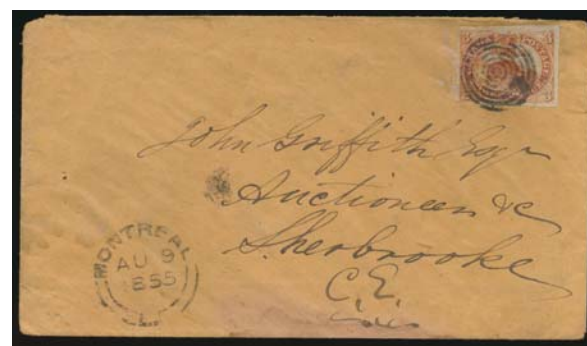 3 POSTAGE 3
John Griffith Esqr
Auctioneer &c
Sherbrooke
C.E.
MONTREAL
AU 9
1855
L